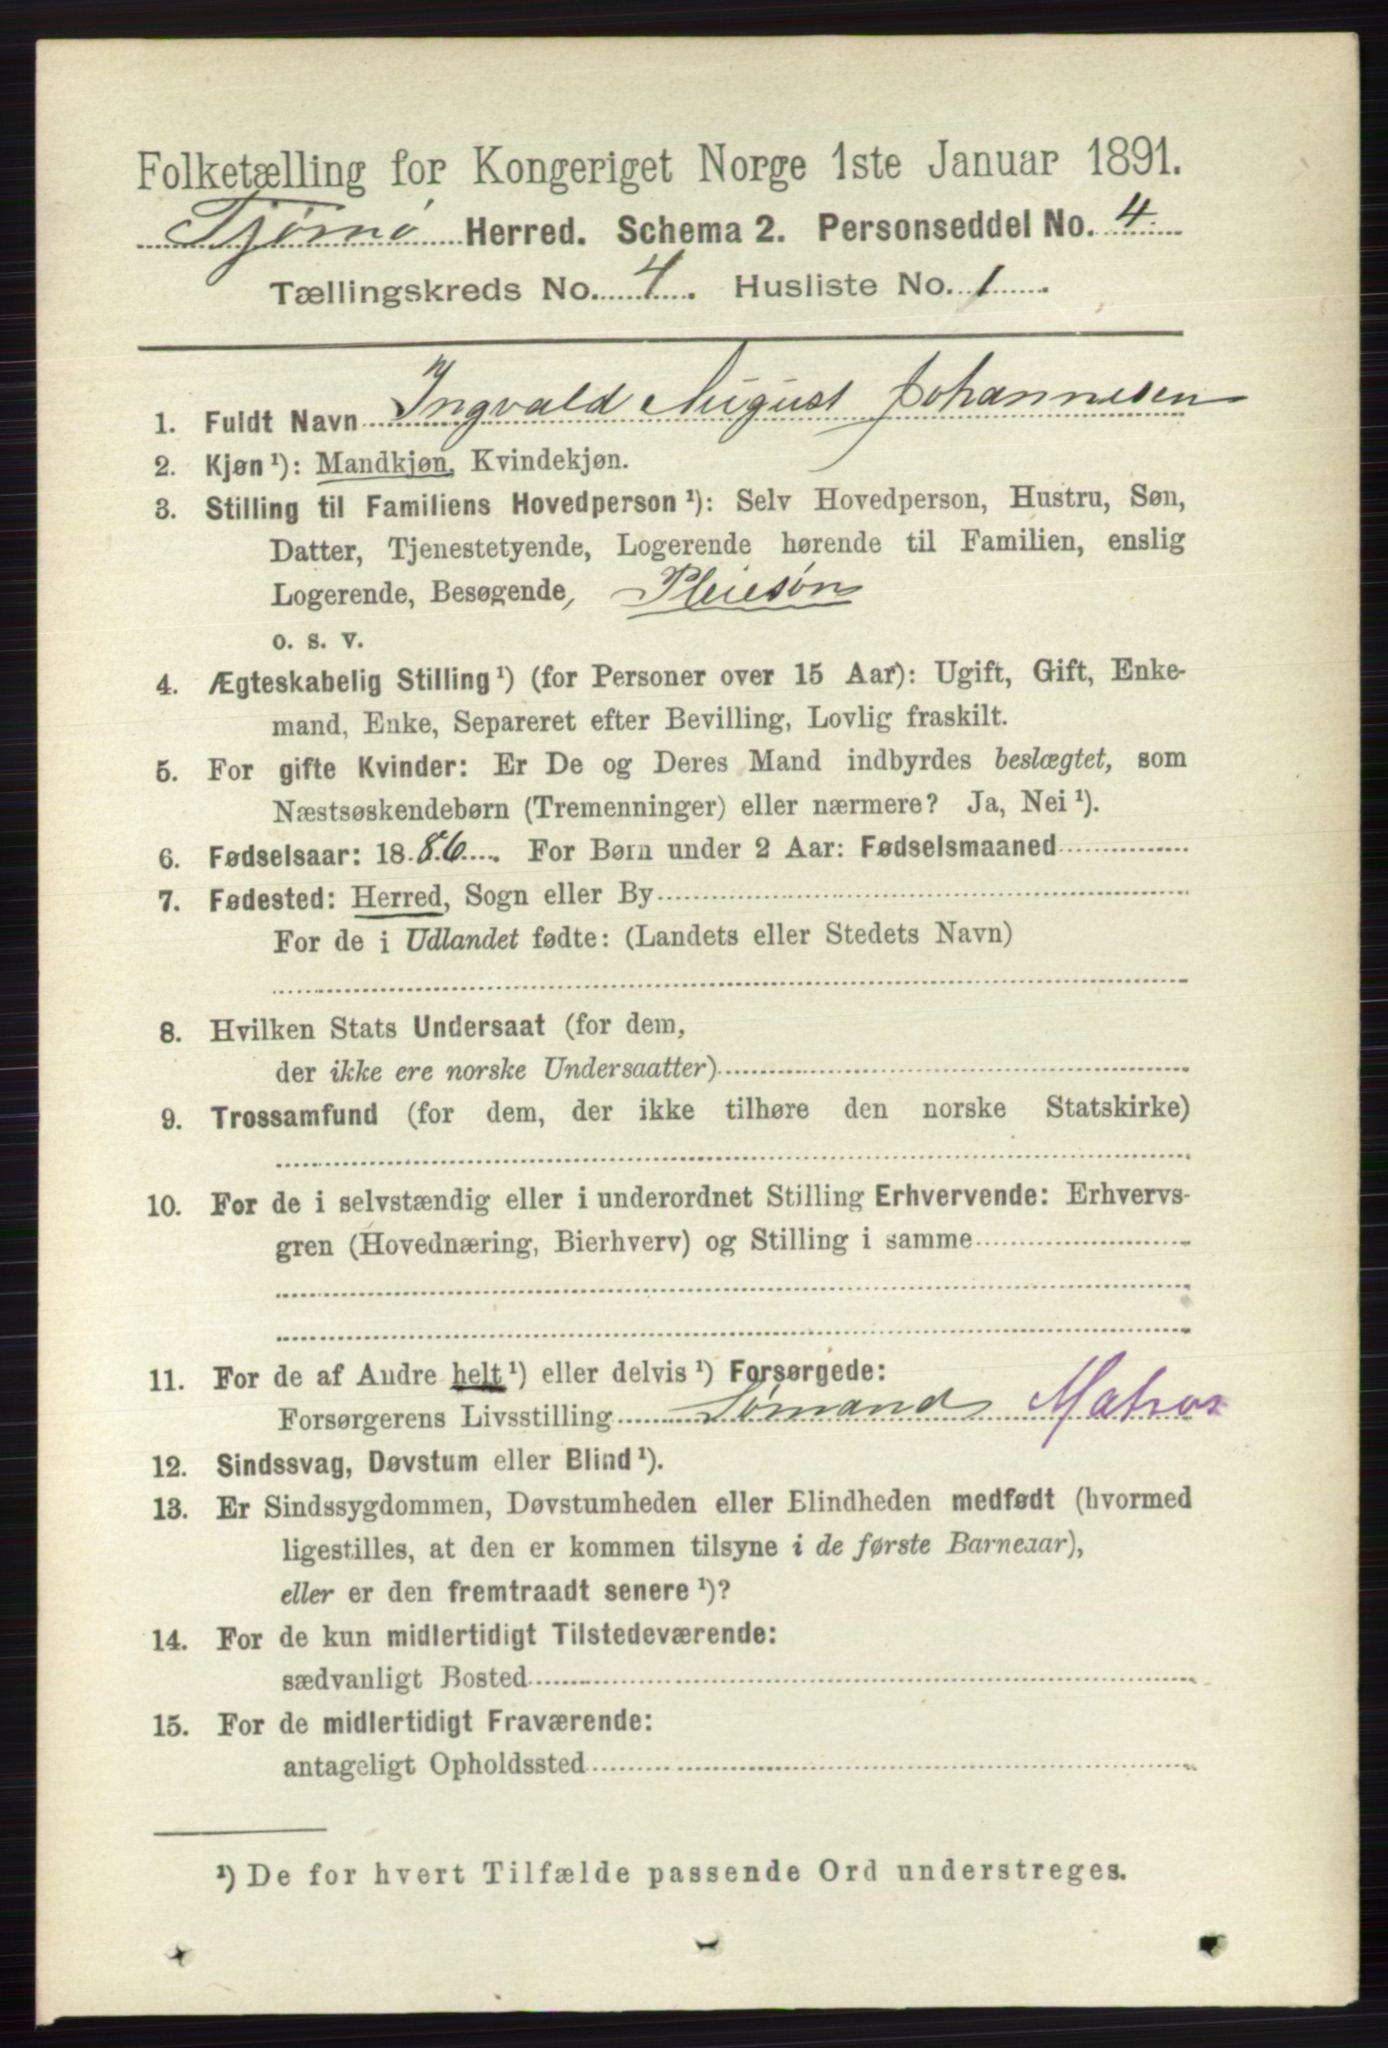 Folketælling for Kongeriget Norge 1ste Januar 1891.
Tjømø Herred. Schema 2. Personseddel No. 4
Tællingskreds No. 4. Husliste No. 1
1. Fuldt Navn Ingvald August Johannesen
2. Kjøn ¹): Mandkjøn, Kvindekjøn.
3. Stilling til Familiens Hovedperson ¹): Selv Hovedperson, Hustru, Søn,
Datter, Tjenestetyende, Logerende hørende til Familien, enslig
Logerende, Besøgende, Pleiesøn
o. s. v.
4. Ægteskabelig Stilling ¹) (for Personer over 15 Aar): Ugift, Gift, Enke-
mand, Enke, Separeret efter Bevilling, Lovlig fraskilt.
5. For gifte Kvinder: Er De og Deres Mand indbyrdes beslægtet, som
Næstsøskendebørn (Tremenninger) eller nærmere? Ja, Nei ¹).
6. Fødselsaar: 1886. For Børn under 2 Aar: Fødselsmaaned
7. Fødested: Herred, Sogn eller By
For de i Udlandet fødte: (Landets eller Stedets Navn)
8. Hvilken Stats Undersaat (for dem,
der ikke ere norske Undersaatter)
9. Trossamfund (for dem, der ikke tilhøre den norske Statskirke)
10. For de i selvstændig eller i underordnet Stilling Erhvervende: Erhvervs-
gren (Hovednæring, Bierhverv) og Stilling i samme
11. For de af Andre helt ¹) eller delvis ¹) Forsørgede:
Forsørgerens Livsstilling Sømand Matros
12. Sindssvag, Døvstum eller Blind ¹).
13. Er Sindssygdommen, Døvstumheden eller Blindheden medfødt (hvormed
ligestilles, at den er kommen tilsyne i de første Barneaar),
eller er den fremtraadt senere ¹)?
14. For de kun midlertidigt Tilstedeværende:
sædvanligt Bosted
15. For de midlertidigt Fraværende:
antageligt Opholdssted
¹) De for hvert Tilfælde passende Ord understreges.